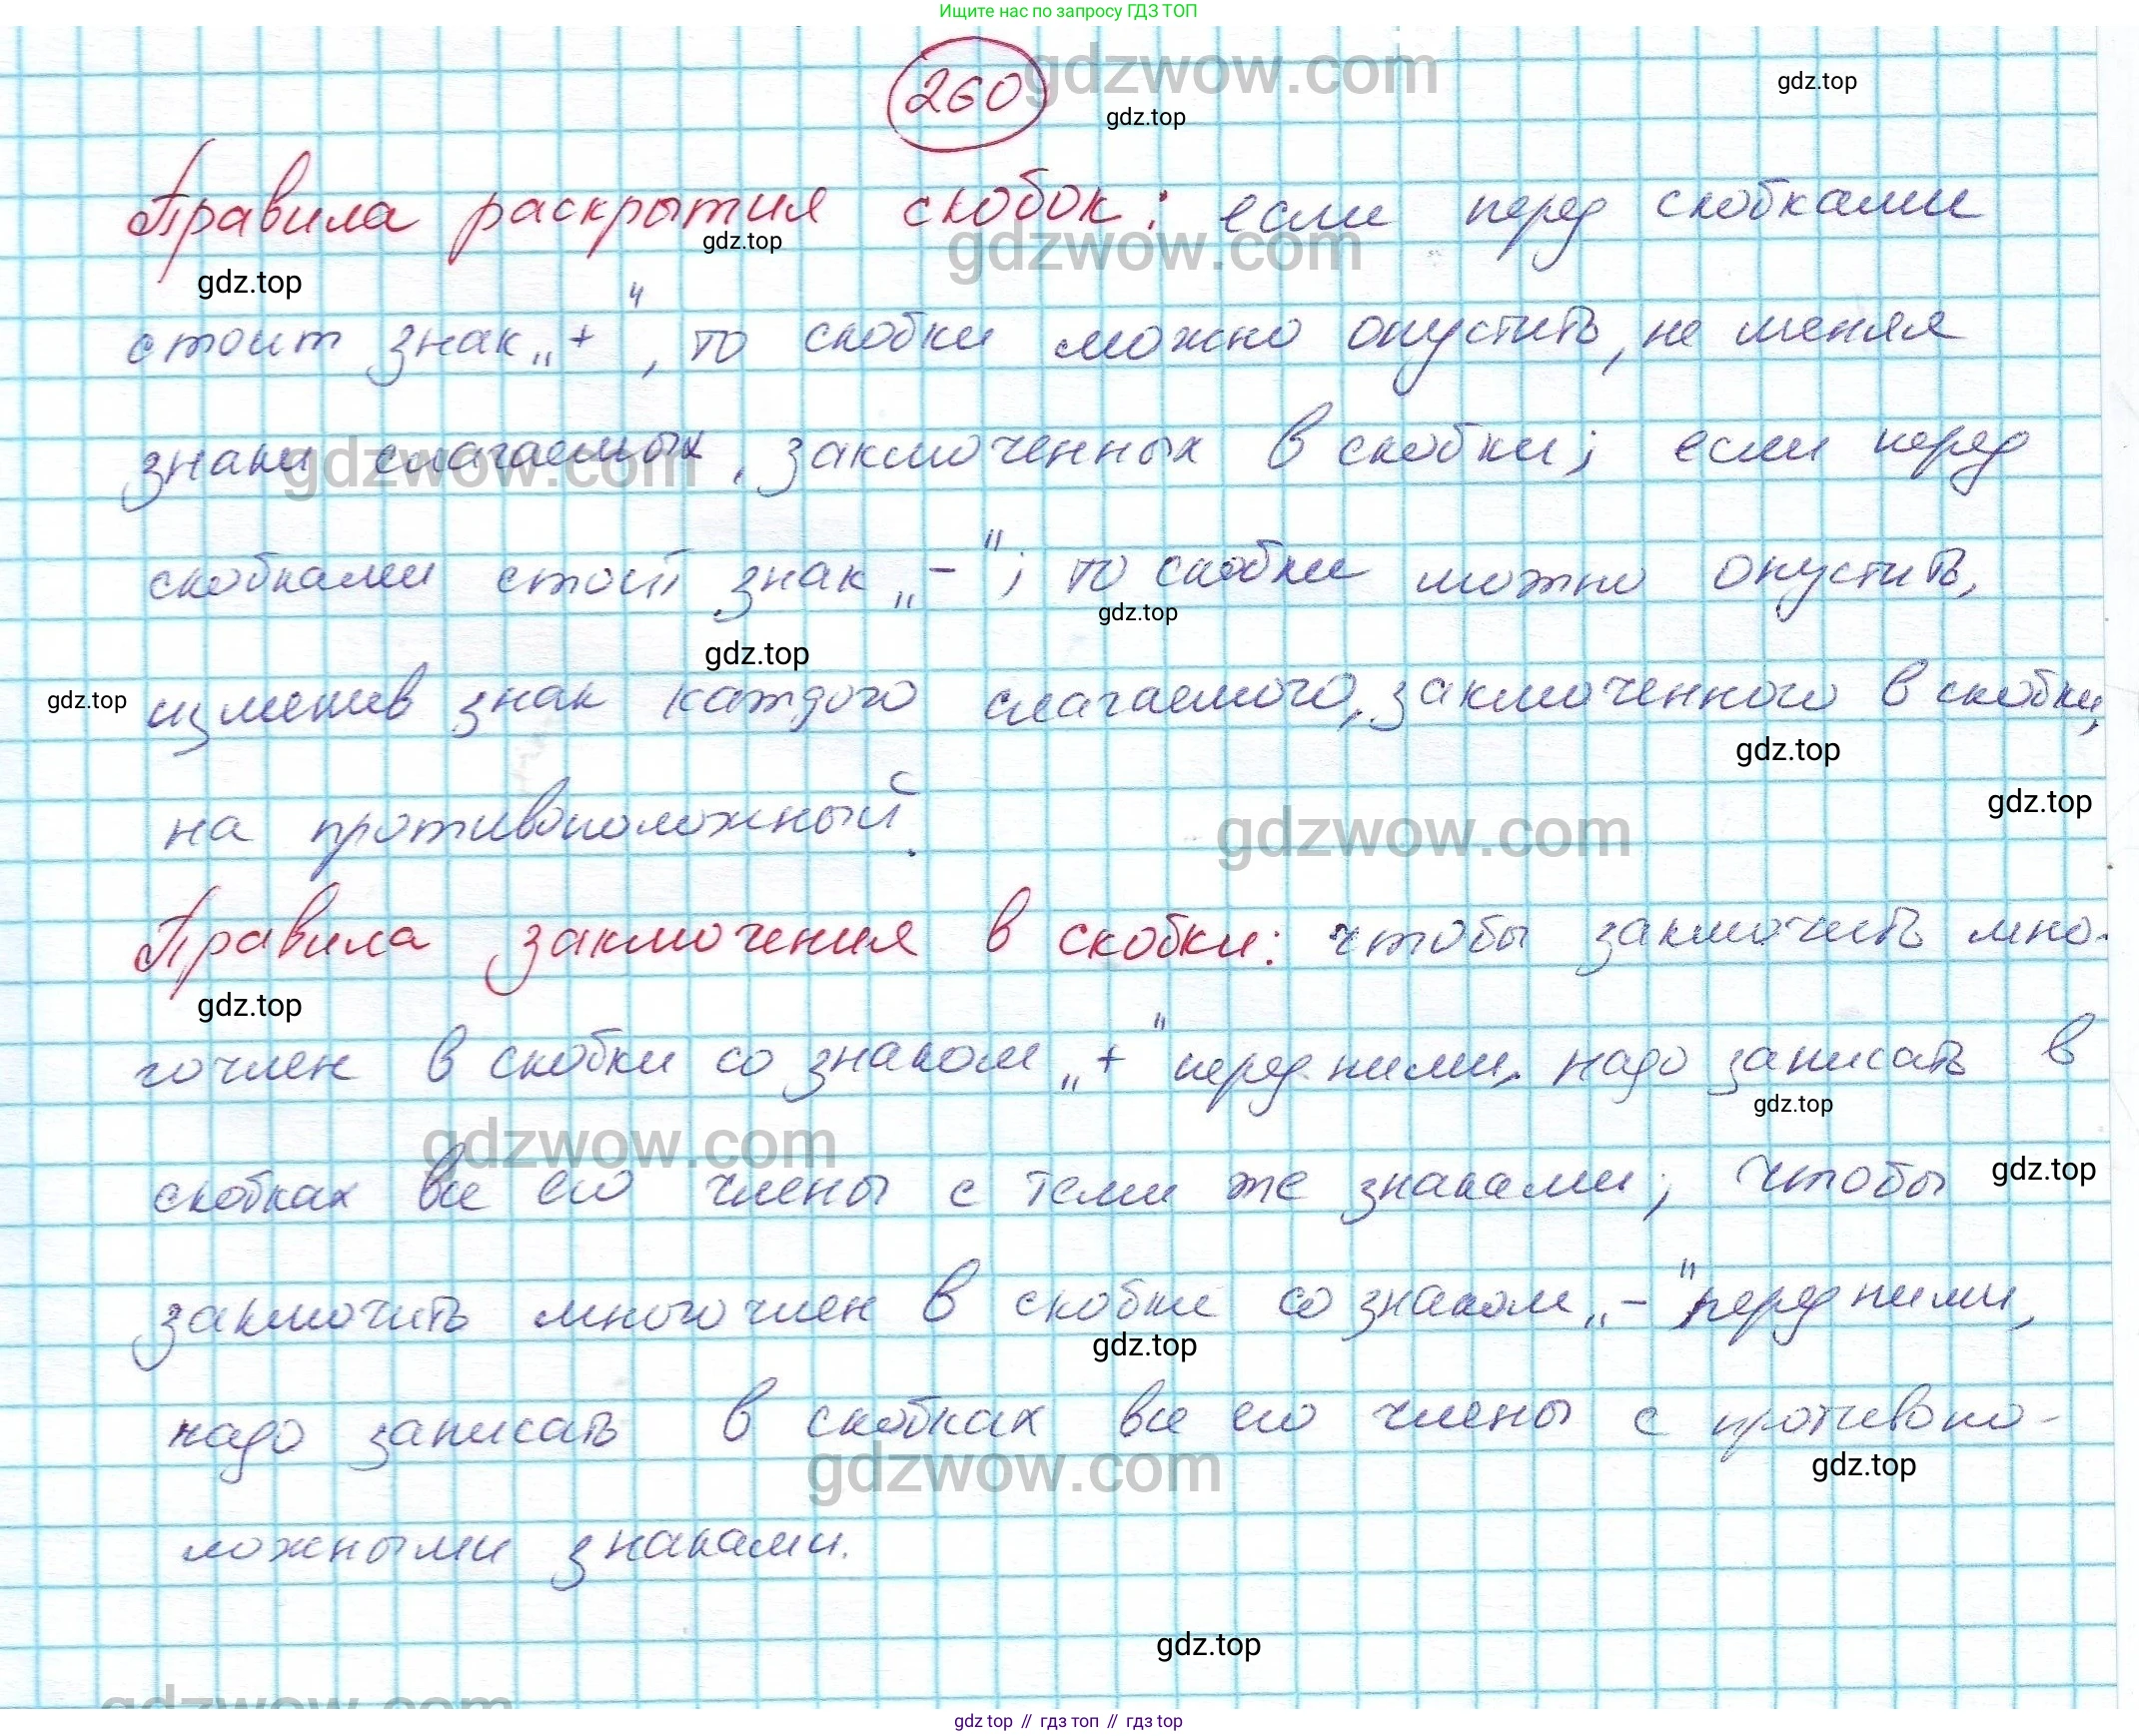 Ищите нас по запросу ГДЗ ТОП
260
gdzwow.com
gdz.top
gdz.top
Правила раскрытия скобок: если перед скобками
gdz.top
gdzwow.com
gdz.top
стоит знак „+“, то скобки можно опустить, не меняя
знаки слагаемых, заключенных в скобки; если перед
gdzwow.com
скобками стоит знак „-“, то скобки можно опустить,
gdz.top
gdz.top
изменив знак каждого слагаемого, заключенного в скобки,
gdz.top
gdz.top
на противоположный.
gdz.top
gdzwow.com
Правила заключения в скобки: чтобы заключить мно-
gdz.top
гочлен в скобки со знаком „+“ перед ними, надо записать в
gdz.top
gdzwow.com
скобках все его члены с теми же знаками; чтобы
gdz.top
заключить многочлен в скобки со знаком „-“ перед ними,
gdz.top
надо записать в скобках все его члены с противопо-
gdzwow.com
gdz.top
ложными знаками.
gdz.top
gdzwow.com
gdz top // гдз топ // гдз top